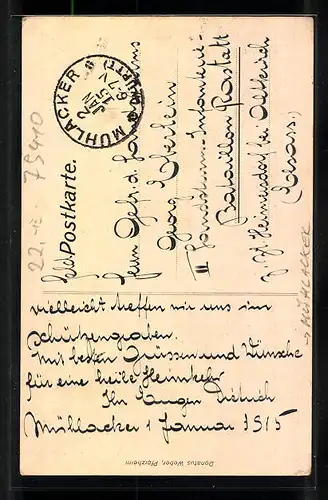 MÜHLACKER
2
JAN
15
6-7 V
Feld Postkarte.
Herrn Gefr. d. Landsturms
Georg Eberlein
III Landsturm-Infanterie-
Bataillon Rastatt
z. Zt. Heimersdorf bei Altkirch
(Elsass.)
vielleicht treffen wir uns im
Schützengraben.
Mit besten Grüssen und Wünsche
für eine heile Heimkehr
Ihr Eugen Dietrich
Mühlacker 1 Januar 1915
Donatus Weber, Pforzheim
→ MÜHLACKER